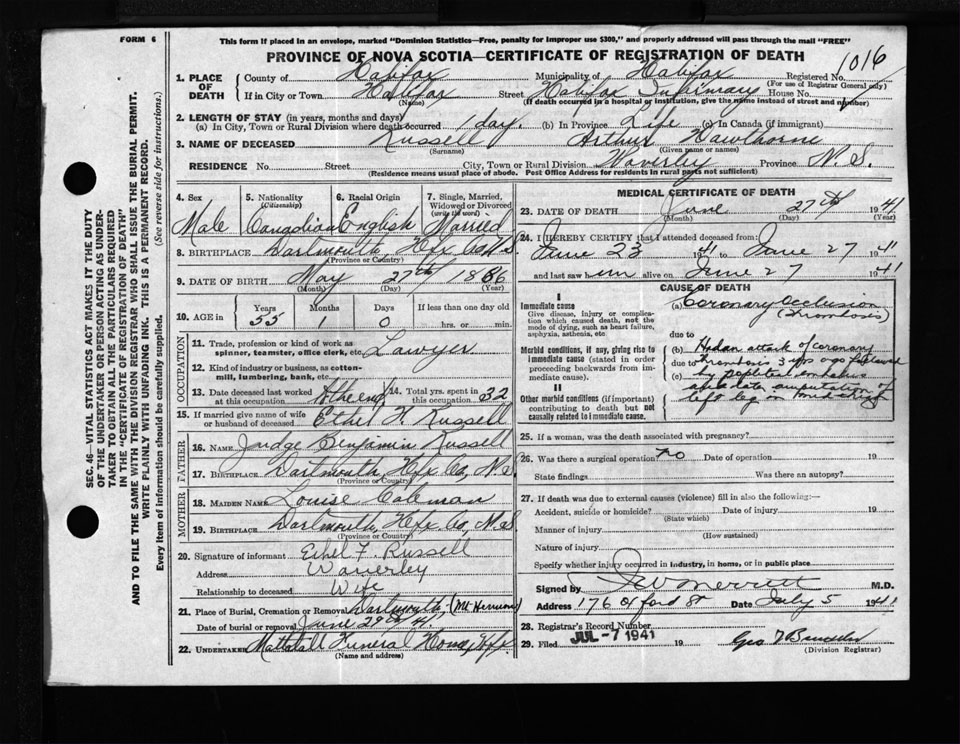 FORM 6
This form if placed in an envelope, marked "Dominion Statistics—Free, penalty for improper use $300," and properly addressed will pass through the mail "FREE"
PROVINCE OF NOVA SCOTIA—CERTIFICATE OF REGISTRATION OF DEATH
1016
1. PLACE OF DEATH
County of Halifax Municipality of Halifax Registered No.
(For use of Registrar General only)
If in City or Town Halifax Street Halifax Infirmary House No.
(Name) (If death occurred in a hospital or institution, give the name instead of street and number)
2. LENGTH OF STAY (in years, months and days)
(a) In City, Town or Rural Division where death occurred 1 day. (b) In Province Life (c) In Canada (if immigrant)
3. NAME OF DECEASED Russell Arthur Hawthorne
(Surname) (Given name or names)
RESIDENCE No. Street City, Town or Rural Division Waverley Province N.S.
(Residence means usual place of abode. Post Office Address for residents in rural parts not sufficient)
4. Sex
Male
5. Nationality
(Citizenship)
Canadian
6. Racial Origin
English
7. Single, Married, Widowed or Divorced
(write the word)
Married
8. BIRTHPLACE Dartmouth, Hfx Co NS
(Province or Country)
9. DATE OF BIRTH May 27th 1886
(Month) (Day) (Year)
10. AGE in
Years Months Days If less than one day old
55 1 0 hrs. or min.
OCCUPATION
11. Trade, profession or kind of work as spinner, teamster, office clerk, etc. Lawyer
12. Kind of industry or business, as cotton-mill, lumbering, bank, etc.
13. Date deceased last worked at this occupation At the end
14. Total yrs. spent in this occupation 32
15. If married give name of wife or husband of deceased Ethel F. Russell
FATHER
16. NAME Judge Benjamin Russell
17. BIRTHPLACE Dartmouth, Hfx Co, N.S
(Province or Country)
MOTHER
18. MAIDEN NAME Louise Coleman
19. BIRTHPLACE Dartmouth, Hfx Co, N.S
(Province or Country)
20. Signature of informant Ethel F. Russell
Address Waverley
Relationship to deceased Wife
21. Place of Burial, Cremation or Removal Dartmouth, (Mt Hermon)
Date of burial or removal June 29th 41.
22. UNDERTAKER Mattatall Funeral Home, Hfx.
(Name and address)
MEDICAL CERTIFICATE OF DEATH
23. DATE OF DEATH June 27th 1941
(Month) (Day) (Year)
24. I HEREBY CERTIFY that I attended deceased from:
June 23 1941 to June 27 1941
and last saw him alive on June 27 1941
CAUSE OF DEATH
I
Immediate cause
Give disease, injury or complication which caused death, not the mode of dying, such as heart failure, asphyxia, asthenia, etc.
Morbid conditions, if any, giving rise to immediate cause (stated in order proceeding backwards from immediate cause).
II
Other morbid conditions (if important) contributing to death but not causally related to immediate cause.
(a) Coronary Occlusion
(Thrombosis)
due to
(b) Had an attack of coronary
due to thrombosis 3 yrs ago followed
(c) by
amputation of
left leg
25. If a woman, was the death associated with pregnancy?
26. Was there a surgical operation? no Date of operation 19
State findings Was there an autopsy?
27. If death was due to external causes (violence) fill in also the following:—
Accident, suicide or homicide? Date of injury 19
(State which)
Manner of injury
(How sustained)
Nature of injury
Specify whether injury occurred in industry, in home, or in public place
Signed by Merritt M.D.
Address 176 Oxford St Date July 5 1941
28. Registrar's Record Number
29. Filed JUL -7 1941 19
(Division Registrar)
SEC. 46—VITAL STATISTICS ACT MAKES IT THE DUTY
OF THE UNDERTAKER OR PERSON ACTING AS UNDER-
TAKER TO OBTAIN ALL THE PARTICULARS REQUIRED
IN THE "CERTIFICATE OF REGISTRATION OF DEATH"
AND TO FILE THE SAME WITH THE DIVISION REGISTRAR WHO SHALL ISSUE THE BURIAL PERMIT.
WRITE PLAINLY WITH UNFADING INK. THIS IS A PERMANENT RECORD.
Every item of information should be carefully supplied. (See reverse side for instructions.)